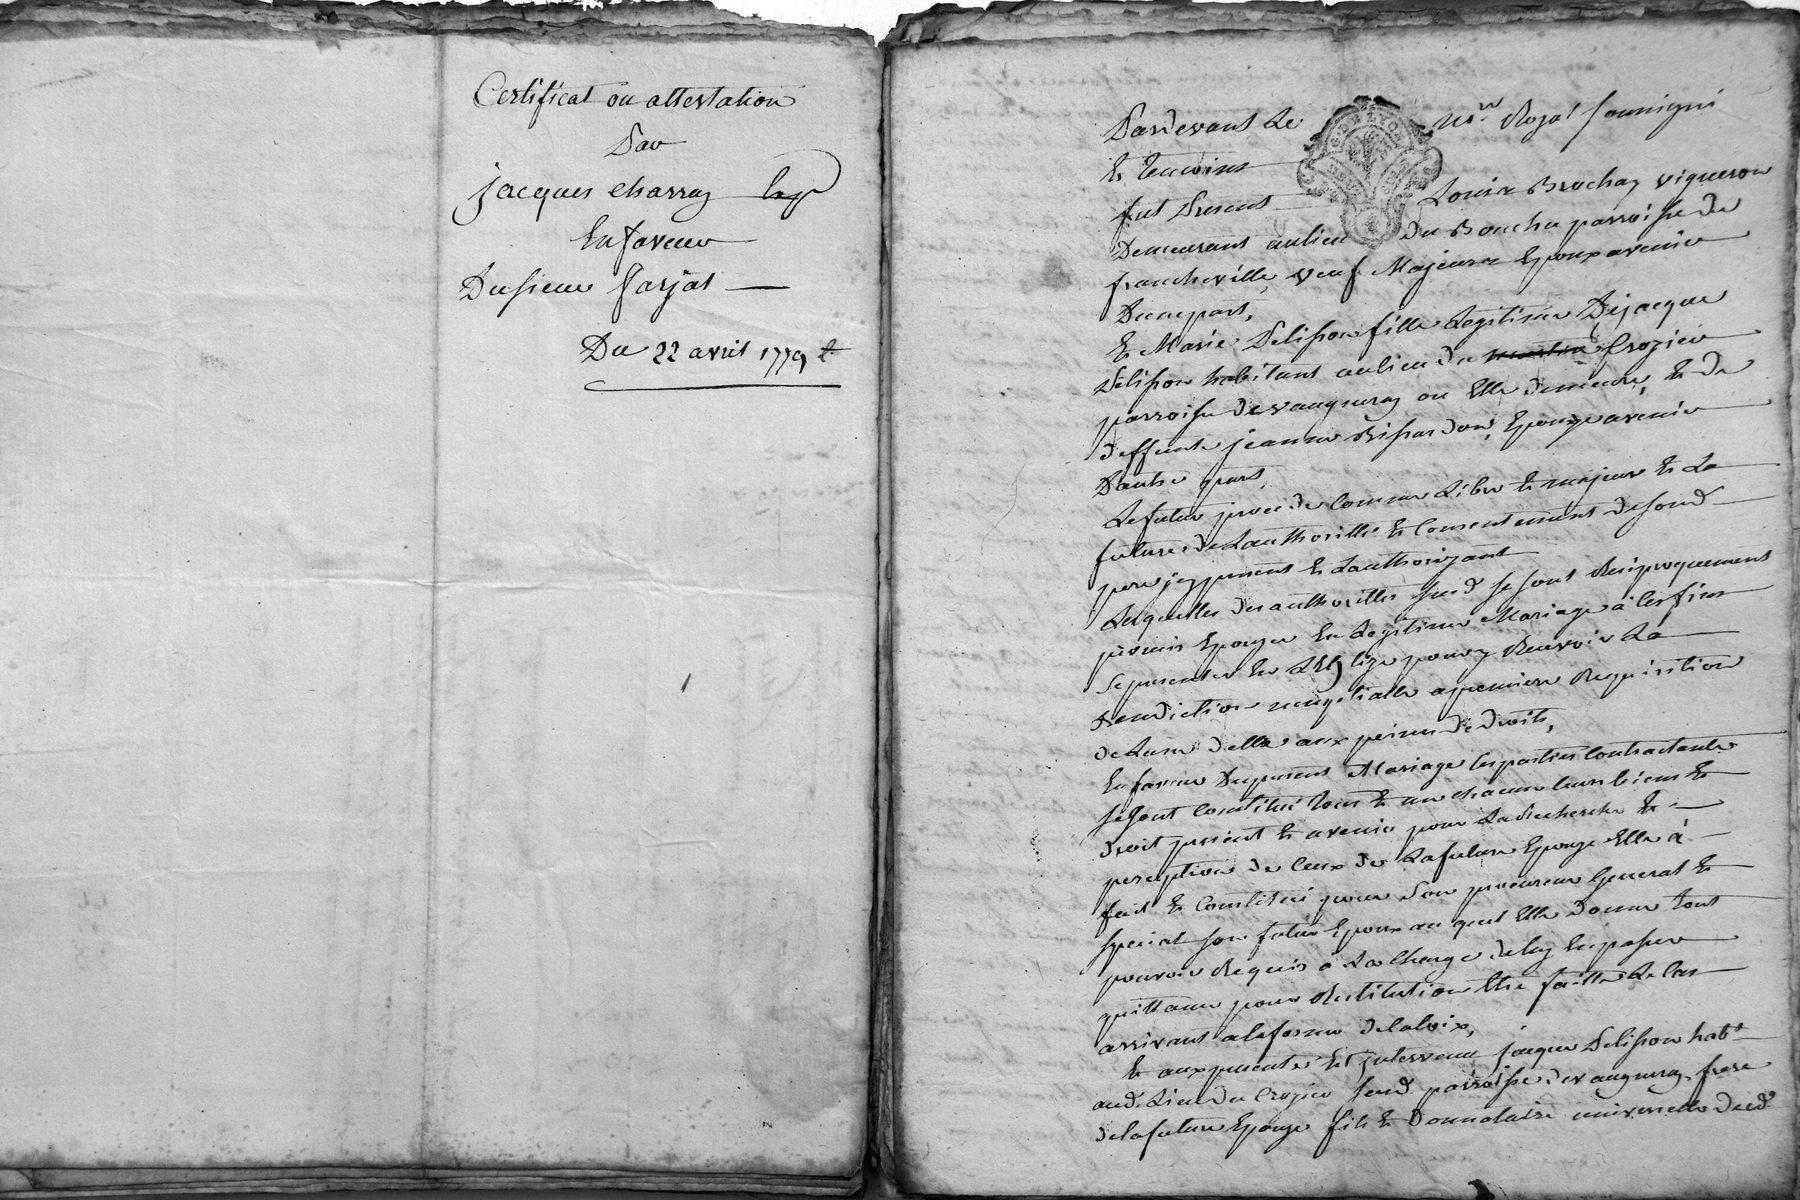 Certificat ou attestation
Par
jacques charray
En faveur
Du sieur farjat
Du 22 avril 1779
Pardevant Le no.re Royal soussigné
Et temoins
fut Present Louis Brochay vigneron
Demeurant au lieu du Bouchu parroisse de
francheville, veuf Majeur Epoux avenir
D'une part,
Et Marie Pelisson fille Legitime De jacque
Pelisson habitant au lieu du Crozieu
parroisse de vaugneray ou Elle demeure, Et de
deffunte jeanne Bissardon, Epouze avenir
D'autre part,
Le futur procede Comme Libre Et majeur Et La
future de L'authorité Et Consentement de son d
pere icy present Et L'authorizant
Lesquelles des authorittés sus d se sont Reciproquement
promis Epouzer En Legitime Mariage à Ces fins
se presenter En L'Eglize pour y Recevoir La
Benediction nuptialle a premiere Requisition
de L'une d'elle aux peines de droits,
En faveur Du present Mariage les parties Contractante
se sont Constitué tous Et un chacun leurs biens Et
droit present Et avenir pour La Recherche Et
perception de Ceux de La future Epouze Elle à
fait Et Constitué pour son procureur General Et
special son futur Epoux au quel Elle donne tout
pouvoir Requis à La Charge de luy En passer
quittance pour Restitution Etre faitte Le Cas
arrivant a la forme de la loix,
Et aux presente Est intervenu jacque Pelisson hab.t
aud. Lieu du Crozieu sus d parroisse de vaugneray, frere
de la future Epouze fils Et Donnataire universelle dud